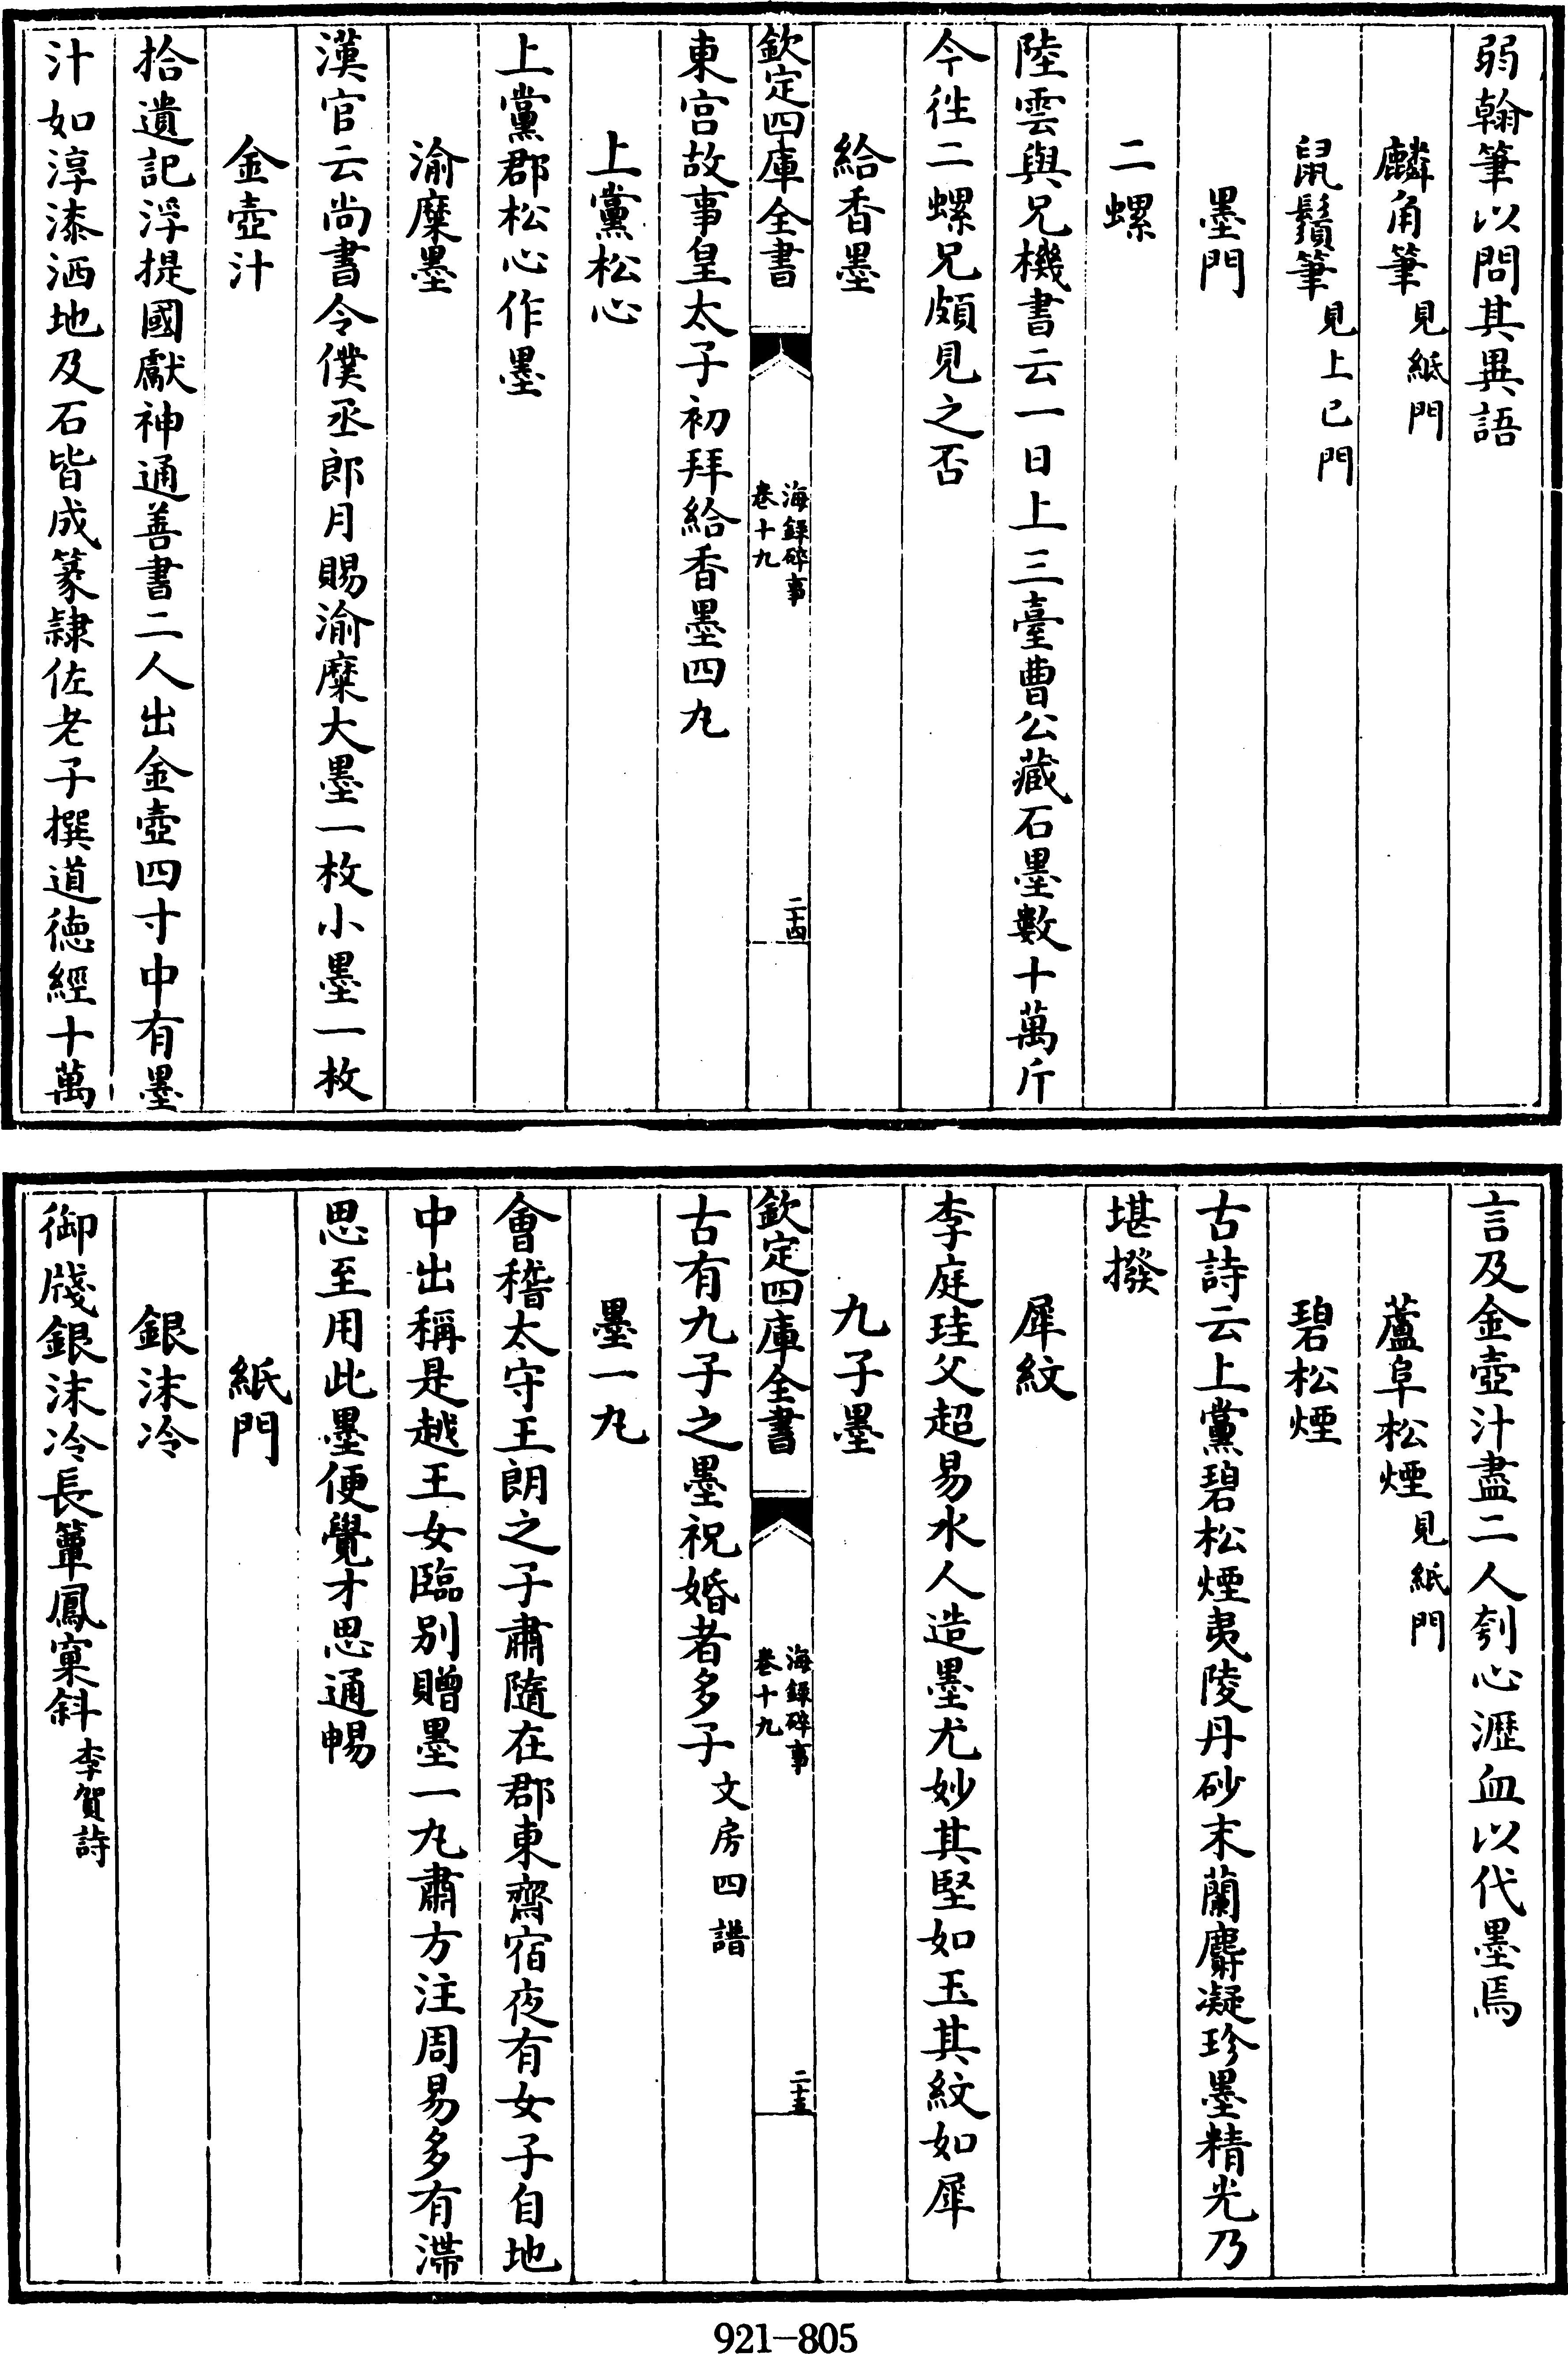 弱翰筆以問其異語
麟角筆見紙門
鼠鬚筆見上巳門
墨門
二螺
陸雲與兄機書云一日上三臺曹公藏石墨數十萬斤
今往二螺兄頗見之否
給香墨
欽定四庫全書
海録碎事
卷十九
二十四
東宫故事皇太子初拜給香墨四丸
上黨松心
上黨郡松心作墨
渝糜墨
漢官云尚書令僕丞郎月賜渝糜大墨一枚小墨一枚
金壺汁
拾遺記浮提國獻神通善書二人出金壺四寸中有墨
汁如淳漆洒地及石皆成篆隷佐老子撰道徳經十萬
言及金壺汁盡二人刳心瀝血以代墨焉
蘆阜松煙見紙門
碧松煙
古詩云上黨碧松煙夷陵丹砂末蘭麝凝珍墨精光乃
堪掇
犀紋
李庭珪父超易水人造墨尤妙其堅如玉其紋如犀
九子墨
欽定四庫全書
海録碎事
卷十九
二十五
古有九子之墨祝婚者多子文房四譜
墨一丸
會稽太守王朗之子肅隨在郡東齋宿夜有女子自地
中出稱是越王女臨别贈墨一丸肅方注周易多有滯
思至用此墨便覺才思通暢
紙門
銀沫冷
御牋銀沫冷長簟鳳窠斜李賀詩
921-805